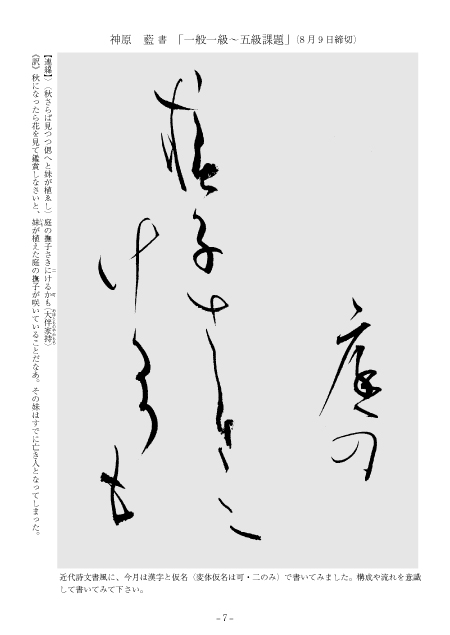 神原　藍 書 「一般一級～五級課題」(8月9日締切)
庭の
撫子さき二
ける可も
【連綿】(秋さらば見つつ偲へと妹が植ゑし) 庭の撫子さきにけるかも(大伴家持)
《訳》秋になったら花を見て鑑賞しなさいと、妹が植えた庭の撫子が咲いていることだなあ。その妹はすでに亡き人となってしまった。
近代詩文書風に、今月は漢字と仮名（変体仮名は可・二のみ）で書いてみました。構成や流れを意識
して書いてみて下さい。
－7－